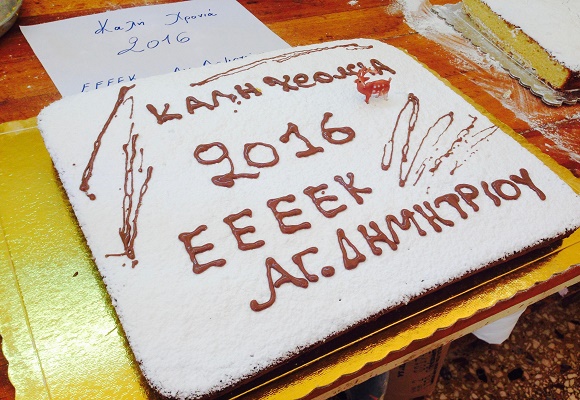 Καλη Χρονιά
2016
ΕΕΕΕΚ
ΚΑΛΗ ΧΡΟΝΙΑ
2016
ΕΕΕΕΚ
ΑΓ. ΔΗΜΗΤΡΙΟΥ